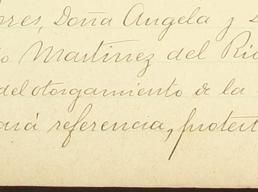 Doña Angela y
Martinez del Rio
del otorgamiento de la
referencia, protest